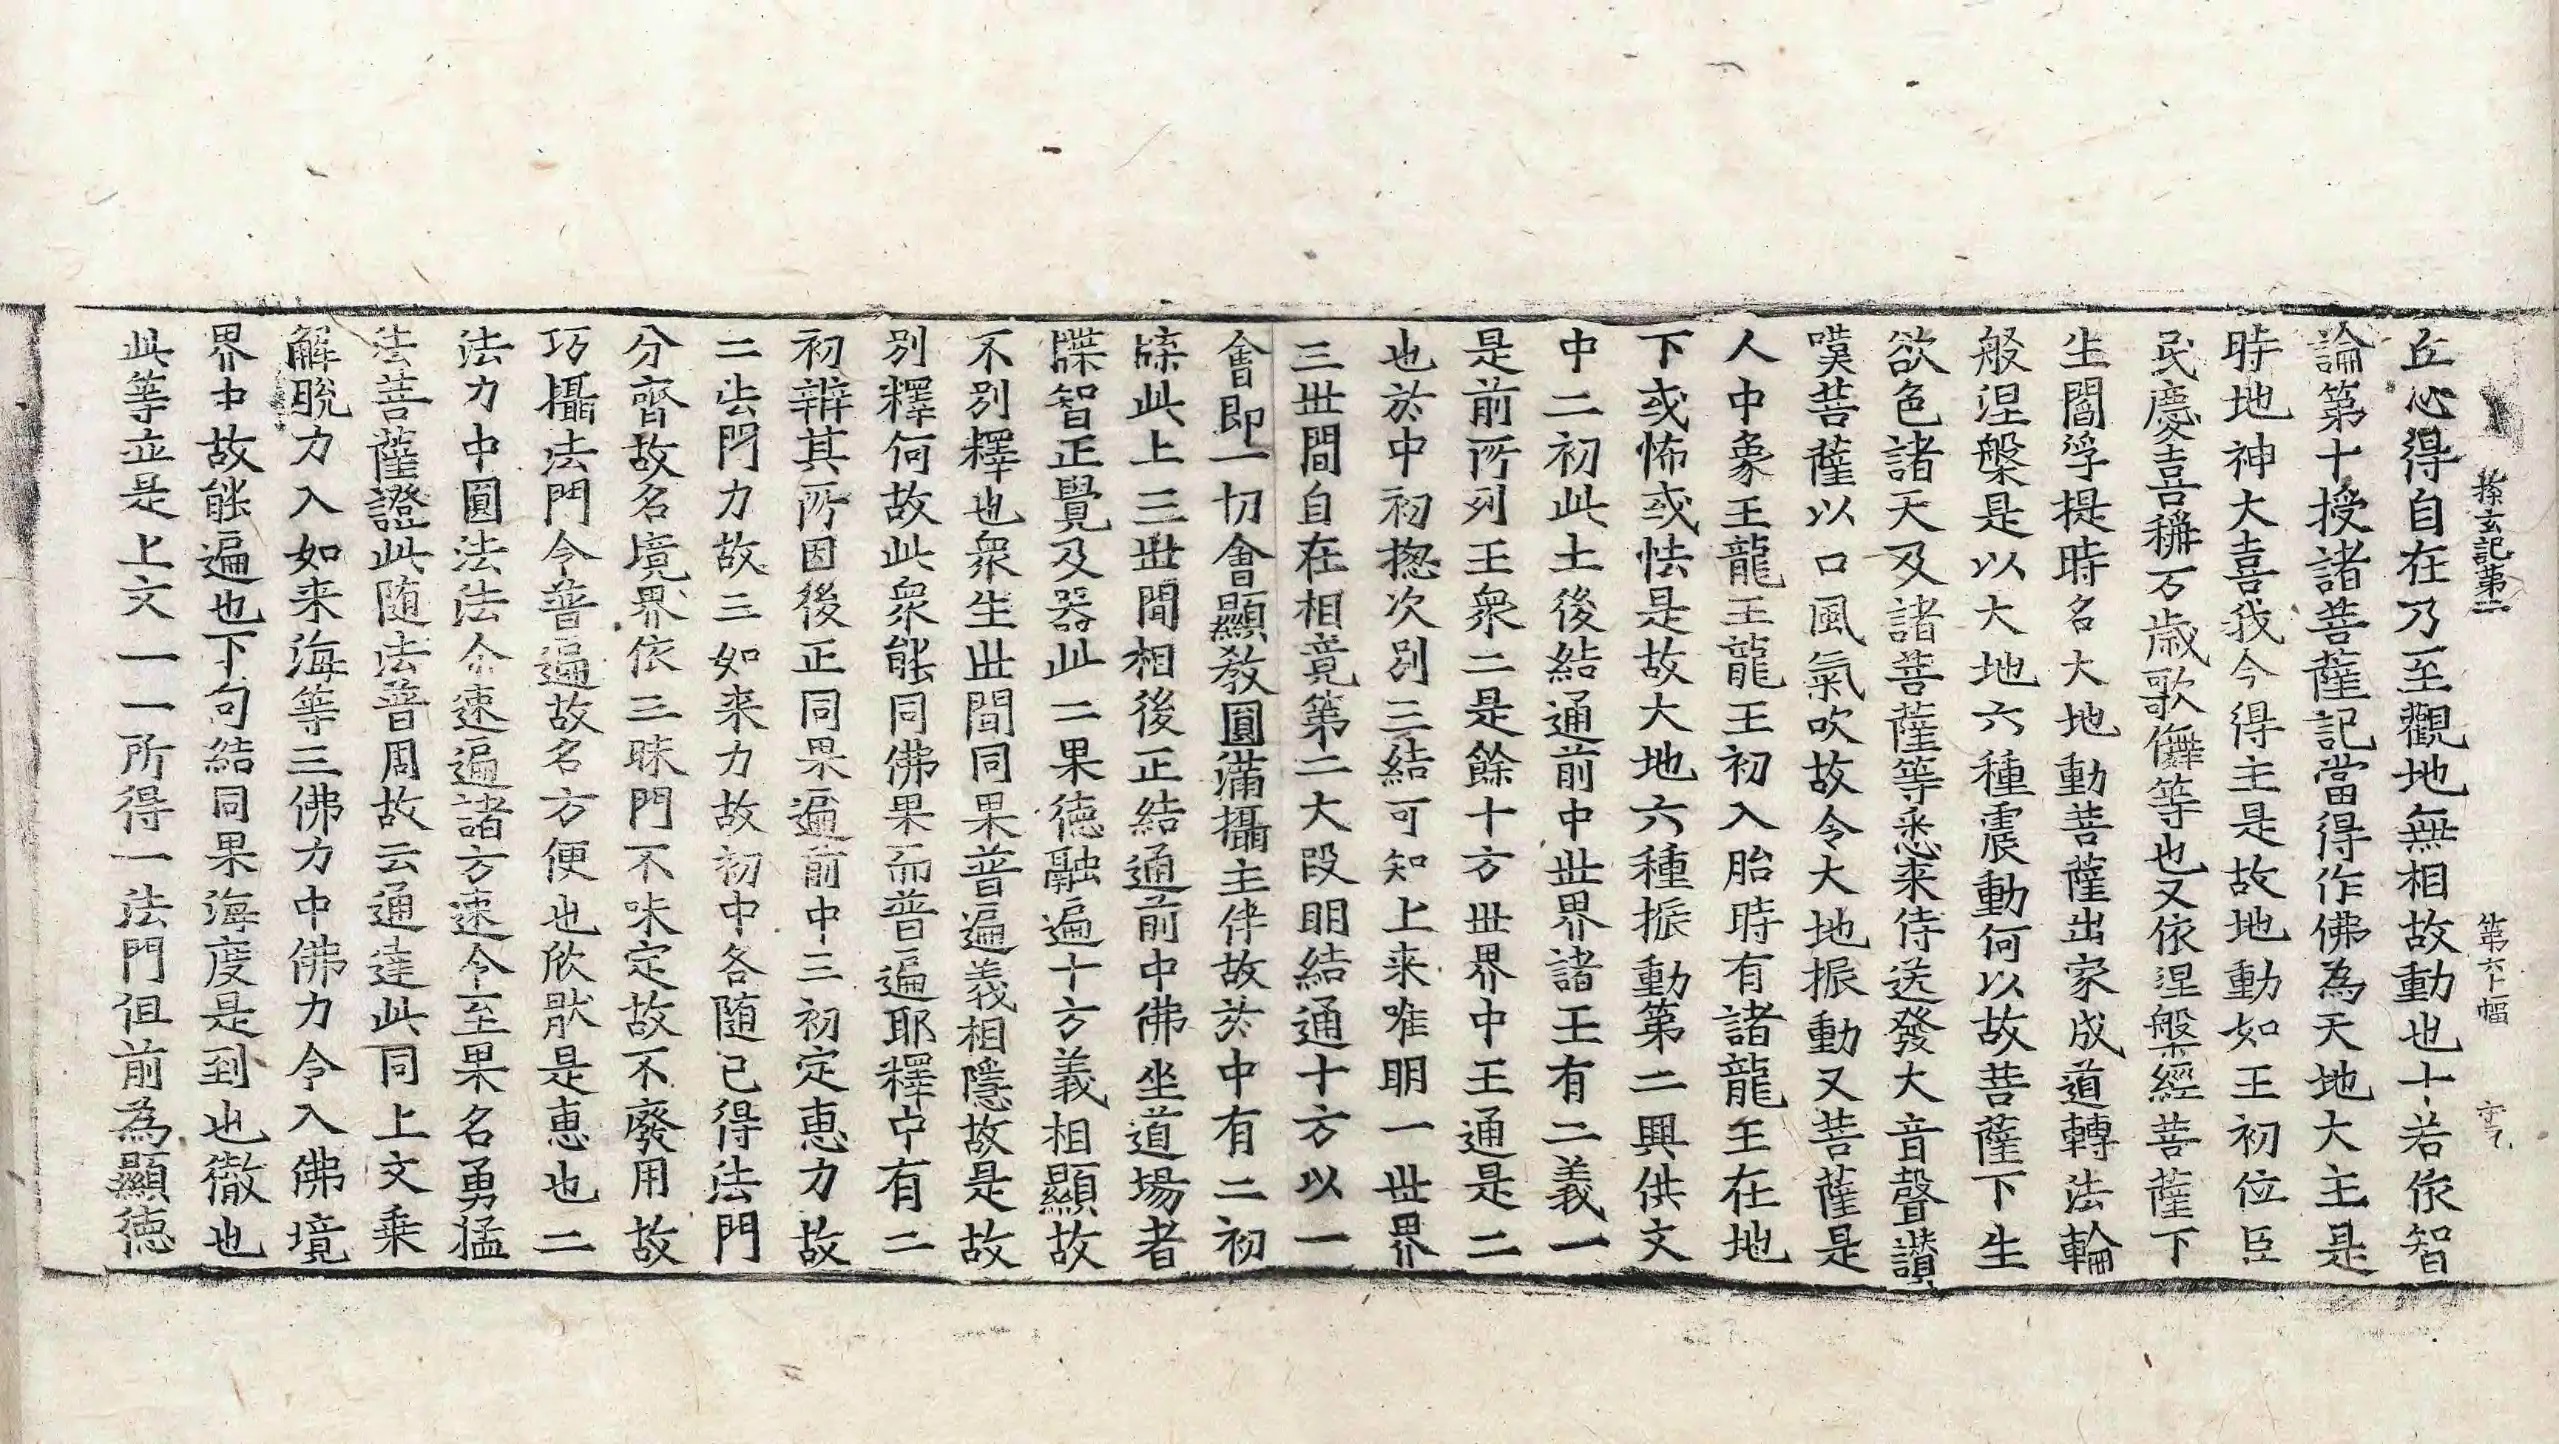 探玄記第二　第六十幅　宇八
丘心得自在乃至觀地無相故動也十若依智
論第十授諸菩薩記當得作佛為天地大主是
時地神大喜我今得主是故地動如王初位臣
民慶喜稱万歲歌儛等也又依涅槃經菩薩下
生閻浮提時名大地動菩薩出家成道轉法輪
般涅槃是以大地六種震動何以故菩薩下生
欲色諸天及諸菩薩等悉来侍送發大音聲讃
嘆菩薩以口風氣吹故令大地振動又菩薩是
人中象王龍王龍王初入胎時有諸龍王在地
下或怖或怯是故大地六種振動第二興供文
中二初此土後結通前中世界諸王有二義一
是前所列王衆二是餘十方世界中王通是二
也於中初揔次別三結可知上来唯明一世界
三世間自在相竟第二大段明結通十方以一
會即一切會顯教圓滿攝主伴故於中有二初
牒此上三世間相後正結通前中佛坐道場者
牒智正覺及器此二果徳融遍十方義相顯故
不別釋也衆生世間同果普遍義相隱故是故
別釋何故此衆能同佛果而普遍耶釋中有二
初辨其所因後正同果遍前中三初定恵力故
二法門力故三如来力故初中各随己得法門
分齊故名境界依三昧門不味定故不廢用故
巧攝法門令普遍故名方便也欣猒是恵也二
法力中圓法法令速遍諸方速令至果名勇猛
法菩薩證此随法普周故云通達此同上文乗
解脫力入如来海等三佛力中佛力令入佛境
界中故能遍也下句結同果海度是到也徹也
此等並是上文一一所得一法門但前為顯徳